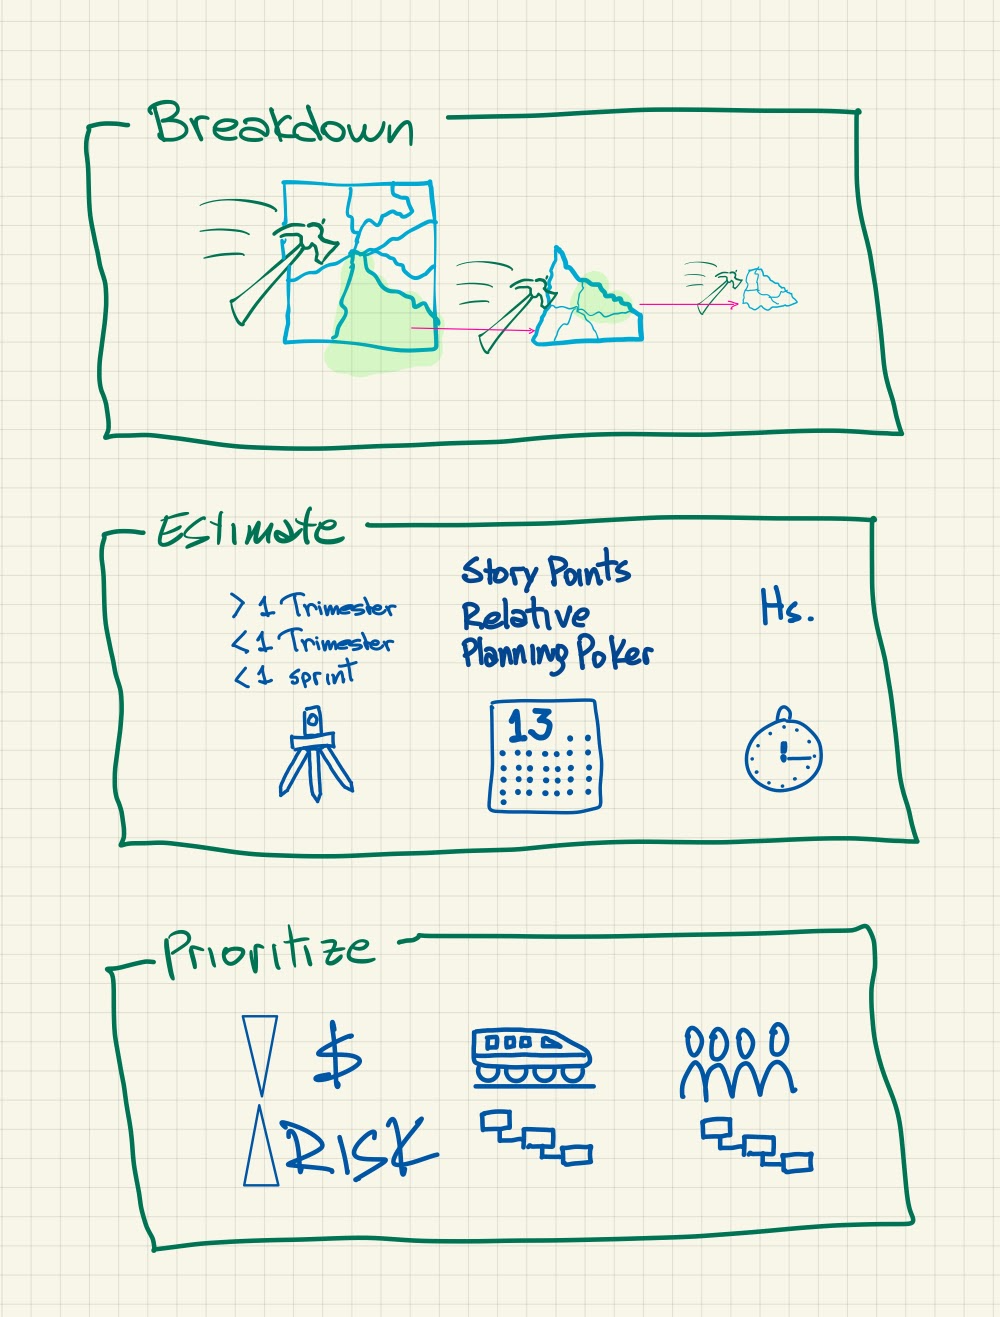 Breakdown
Estimate
> 1 Trimester
< 1 Trimester
< 1 sprint
Story Points
Relative
Planning Poker
Hs.
13
Prioritize
$
RISK